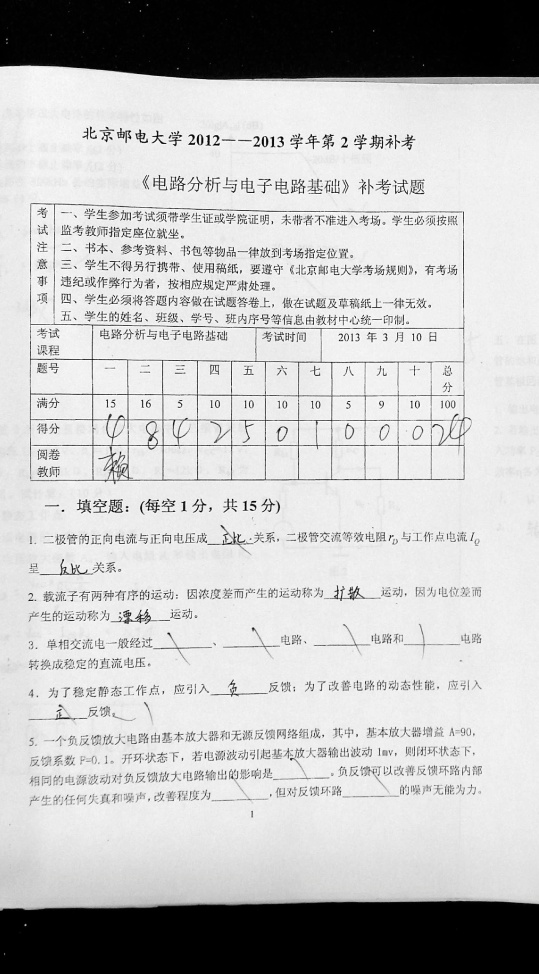 北京邮电大学2012——2013学年第2学期补考
《电路分析与电子电路基础》补考试题
考试注意事项
一、学生参加考试须带学生证或学院证明，未带者不准进入考场。学生必须按照
监考教师指定座位就坐。
二、书本、参考资料、书包等物品一律放到考场指定位置。
三、学生不得另行携带、使用稿纸，要遵守《北京邮电大学考场规则》，有考场
违纪或作弊行为者，按相应规定严肃处理。
四、学生必须将答题内容做在试题答卷上，做在试题及草稿纸上一律无效。
五、学生的姓名、班级、学号、班内序号等信息由教材中心统一印制。
考试课程 电路分析与电子电路基础 考试时间 2013 年 3 月 10 日
题号 一 二 三 四 五 六 七 八 九 十 总分
满分 15 16 5 10 10 10 10 5 9 10 100
得分 4 8 4 2 5 0 1 0 0 0 24
阅卷教师 赖
一．填空题：(每空1分，共15分)
1. 二极管的正向电流与正向电压成 正比 关系，二极管交流等效电阻 rD 与工作点电流 IQ
呈 反比 关系。
2. 载流子有两种有序的运动：因浓度差而产生的运动称为 扩散 运动，因为电位差而
产生的运动称为 漂移 运动。
3. 单相交流电一般经过______、______电路、______电路和______电路
转换成稳定的直流电压。
4. 为了稳定静态工作点，应引入 负 反馈；为了改善电路的动态性能，应引入
正 反馈。
5. 一个负反馈放大电路由基本放大器和无源反馈网络组成，其中，基本放大器增益 A=90，
反馈系数 F=0.1。开环状态下，若电源波动引起基本放大器输出波动 1mv，则闭环状态下，
相同的电源波动对负反馈放大电路输出的影响是______。负反馈可以改善反馈环路内部
产生的任何失真和噪声，改善程度为______，但对反馈环路______的噪声无能为力。
1